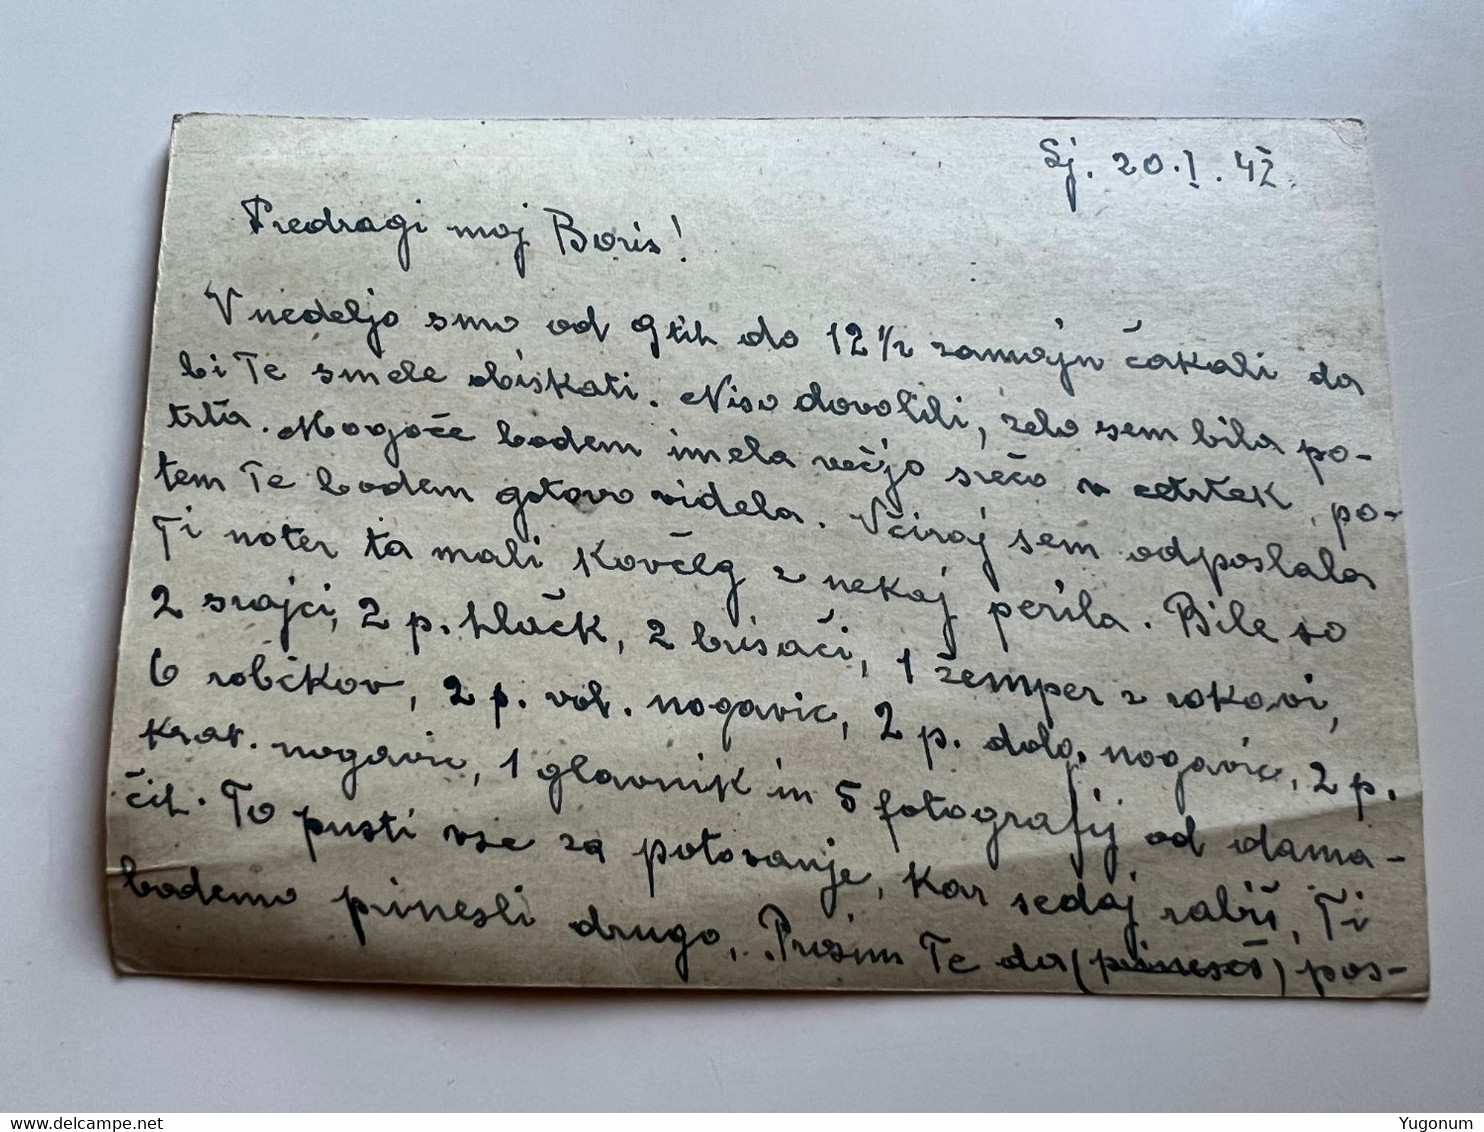 Lj. 20.I.42.
Predragi moj Boris!
V nedeljo smo od 9tih do 12 1/2 zamajn čakali da
bi Te smele obiskati. Niso dovolili, zelo sem bila po-
trta. Mogoče bodem imela večjo srečo v cetrtek, po-
tem Te bodem gotovo videla. Včiraj sem odposlala
Ti noter ta mali kovčeg z nekaj perila. Bile so
2 srajci, 2 p. hlačk, 2 brisači, 1 žemper z rokavi,
6 robčkov, 2 p. vol. nogavic, 2 p. dolg. nogavic, 2 p.
krat. nogavic, 1 glavnik in 5 fotografij od doma-
čih. To pusti vse za potovanje, kar sedaj rabiš, Ti
bodemo prinesli drugo. Prosim Te da (prineseš) pos-
Yugonum